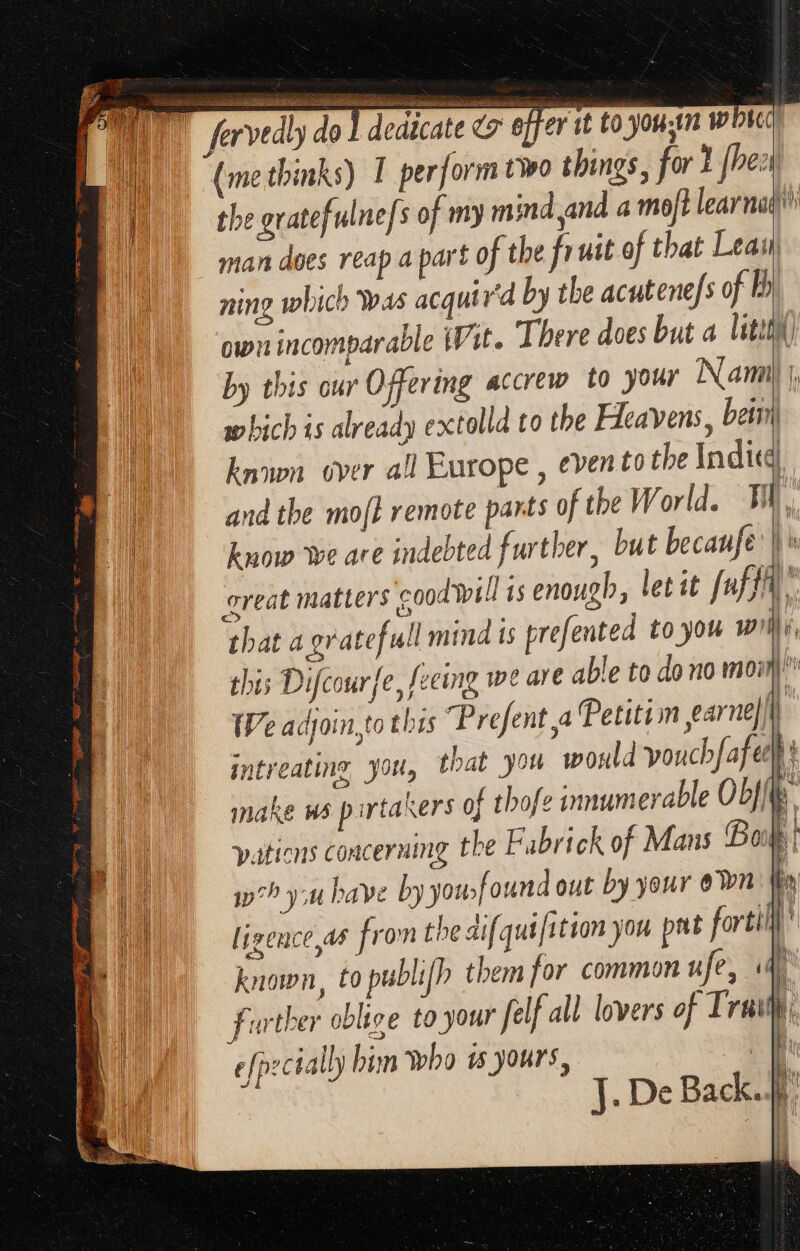 ſervedly do I dedicate & offer it to you, in
(me thinks) I perform two things, for I
the gratefulneſs of my mind, and a moſt
man does reap a part of the fruit of that
ning which was acquir'd by the acuteneſs of
own incomparable Wit. There does but a
by this our Offering accrew to your
which is already extolld to the Heavens,
known over all Europe, even to the
and the moſt remote parts of the World.
know we are indebted further, but becauſe
great matters goodwill is enough, let it
that a gratefull mind is preſented to you
this Diſcourſe, ſeeing we are able to do no
We adjoin, to this Preſent, a Petition,
intreating you, that you would
make us partakers of thoſe innumerable
vations concerning the Fabrick of Mans
wch you have by you, found out by your own
ligence, as from the diſquiſition you put
known, to publiſh them for common uſe,
further oblige to your ſelf all lovers of
eſpecially him who is yours,
J. De Back.